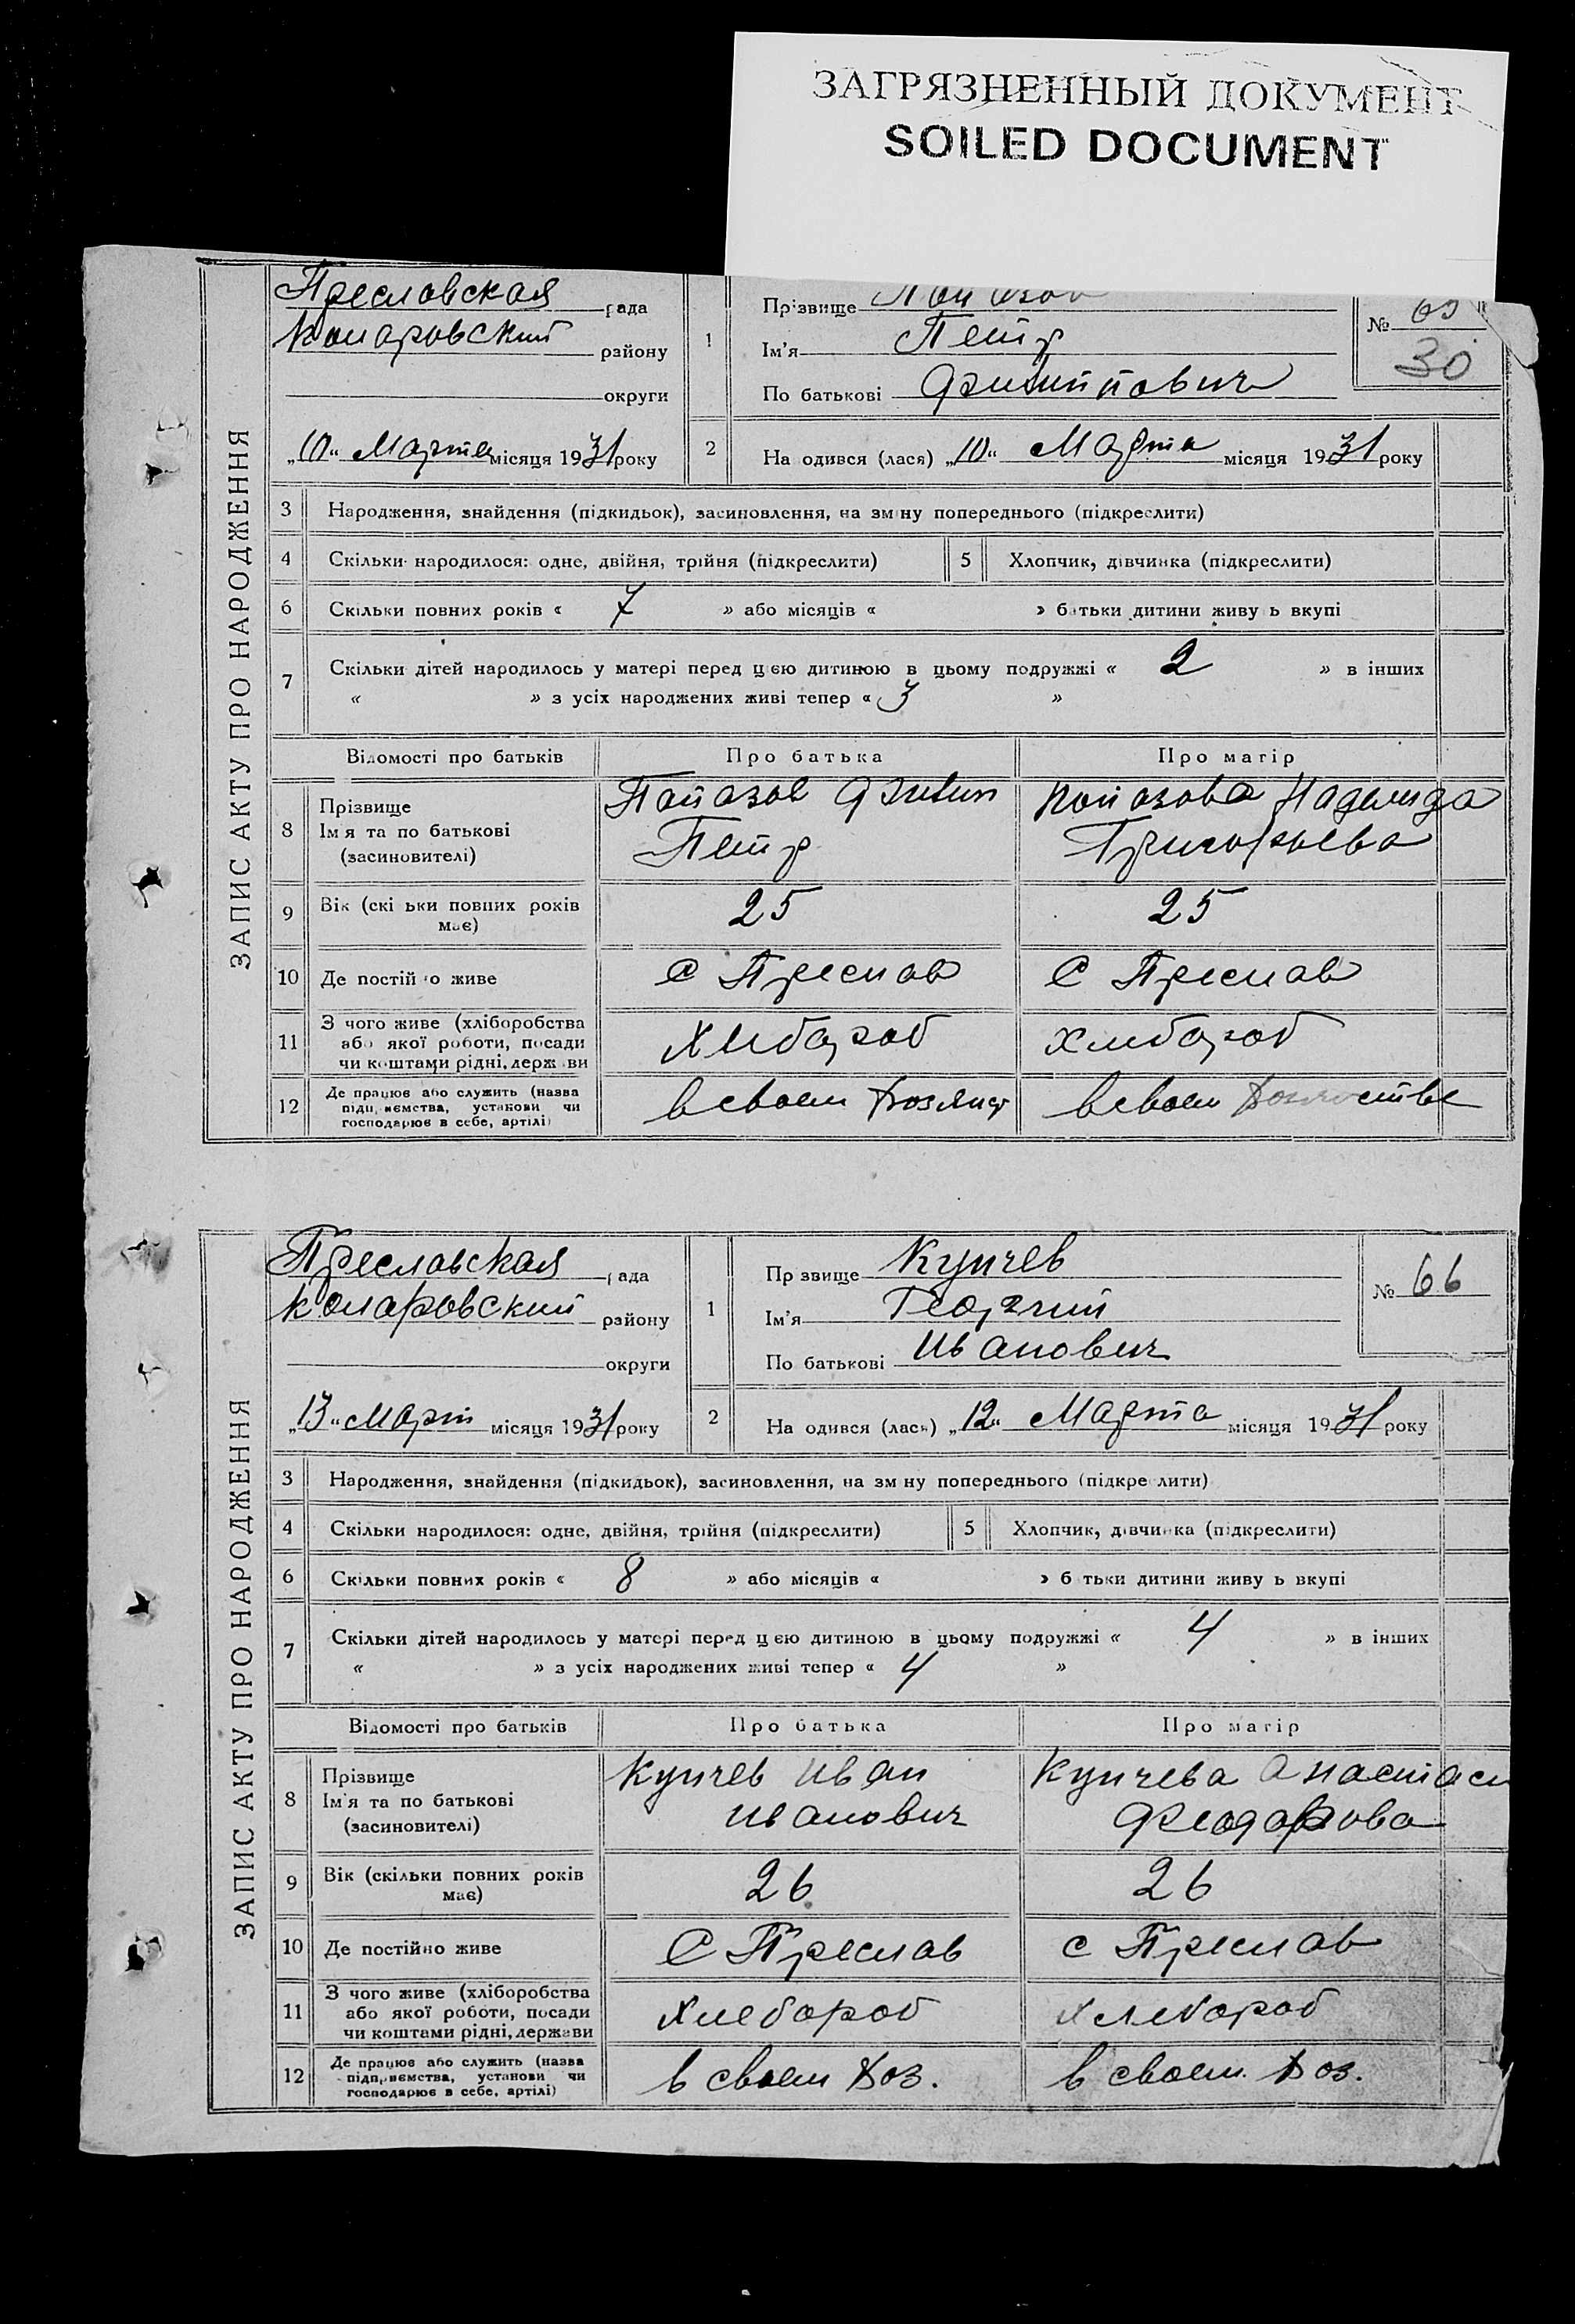 ЗАГРЯЗНЕННЫЙ ДОКУМЕНТ
SOILED DOCUMENT
ЗАПИС АКТУ ПРО НАРОДЖЕННЯ
Преславская рада
Коларовский району
округи
„10“ Марта місяця 1931 року
1
Прізвище
Ім'я Петр
По батькові Филиппович
№ 65
30
2 На одився (лася) „10“ Марта місяця 1931 року
3 Народження, знайдення (підкидьок), засиновлення, на зміну попереднього (підкреслити)
4 Скільки народилося: одне, двійня, трійня (підкреслити) 5 Хлопчик, дівчинка (підкреслити)
6 Скільки повних років « 7 » або місяців « » батьки дитини живу ь вкупі
7 Скільки дітей народилось у матері перед цією дитиною в цьому подружжі « 2 » в інших
« » з усіх народжених живі тепер « 3 »
Відомості про батьків Про батька Про матір
8 Прізвище
Ім я та по батькові
(засиновителі)
Папазов Филип
Петр
Папазова Надежда
Григорьева
9 Вік (скі ьки повних років
має)
25 25
10 Де постій о живе С Преслав С Преслав
11 З чого живе (хліборобства
або якої роботи, посади
чи коштами рідні, держави
Хлебороб Хлебороб
12 Де працює або служить (назва
підприємства, установи чи
господарює в себе, артілі)
в своем хозяйст в своем хозяйстве
ЗАПИС АКТУ ПРО НАРОДЖЕННЯ
Преславская рада
Коларовский району
округи
„13“ Март місяця 1931 року
1
Пр звище Купчев
Ім'я Георгий
По батькові Иванович
№ 66
2 На одився (лася) „12“ Марта місяця 1931 року
3 Народження, знайдення (підкидьок), засиновлення, на зм ну попереднього (підкре лити)
4 Скільки народилося: одне, двійня, трійня (підкреслити) 5 Хлопчик, дівчинка (підкреслити)
6 Скільки повних років « 8 » або місяців « » б тьки дитини живу ь вкупі
7 Скільки дітей народилось у матері перед цією дитиною в цьому подружжі « 4 » в інших
« » з усіх народжених живі тепер « 4 »
Відомості про батьків Про батька Про матір
8 Прізвище
Ім'я та по батькові
(засиновителі)
Купчев Иван
Иванович
Купчева Анастаси
Феодорова
9 Вік (скільки повних років
має)
26 26
10 Де постійно живе С Преслав с Преслав
11 З чого живе (хліборобства
або якої роботи, посади
чи коштами рідні, держави
Хлебороб Хлебороб
12 Де працює або служить (назва
підприємства, установи чи
господарює в себе, артілі)
в своем хоз. в своем хоз.